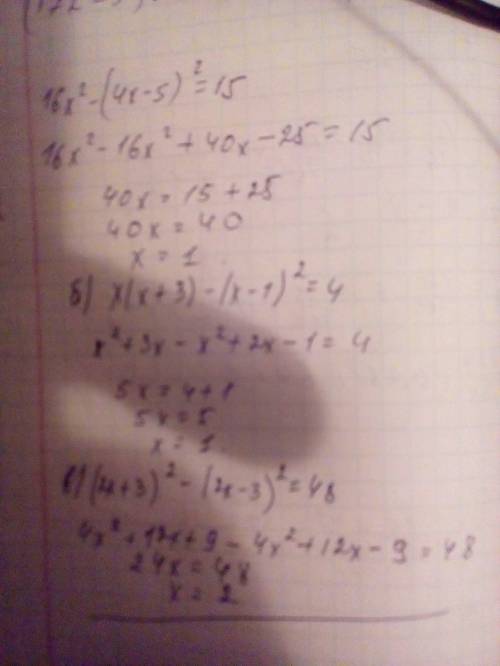 16x² - (4x-5)² = 15
16x² - 16x² + 40x - 25 = 15
40x = 15 + 25
40x = 40
x = 1
б) x(x+3) - (x-1)² = 4
x² + 3x - x² + 2x - 1 = 4
5x = 4+1
5x = 5
x = 1
в) (2x+3)² - (2x-3)² = 48
4x² + 12x + 9 - 4x² + 12x - 9 = 48
24x = 48
x = 2